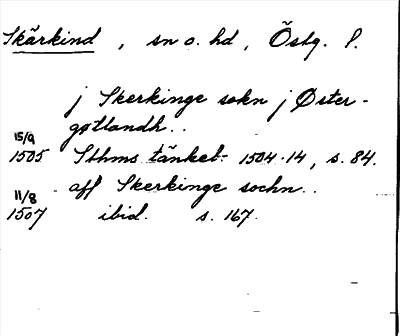 Skärkind, sn o. hd, Östg. l.
j Skerkinge sokn j Øster-
gøtlandh..
15/9
1505 Sthms tänkeb. 1504-14, s. 84.
aff Skerkinge sochn..
11/8
1507 ibid. s. 167.